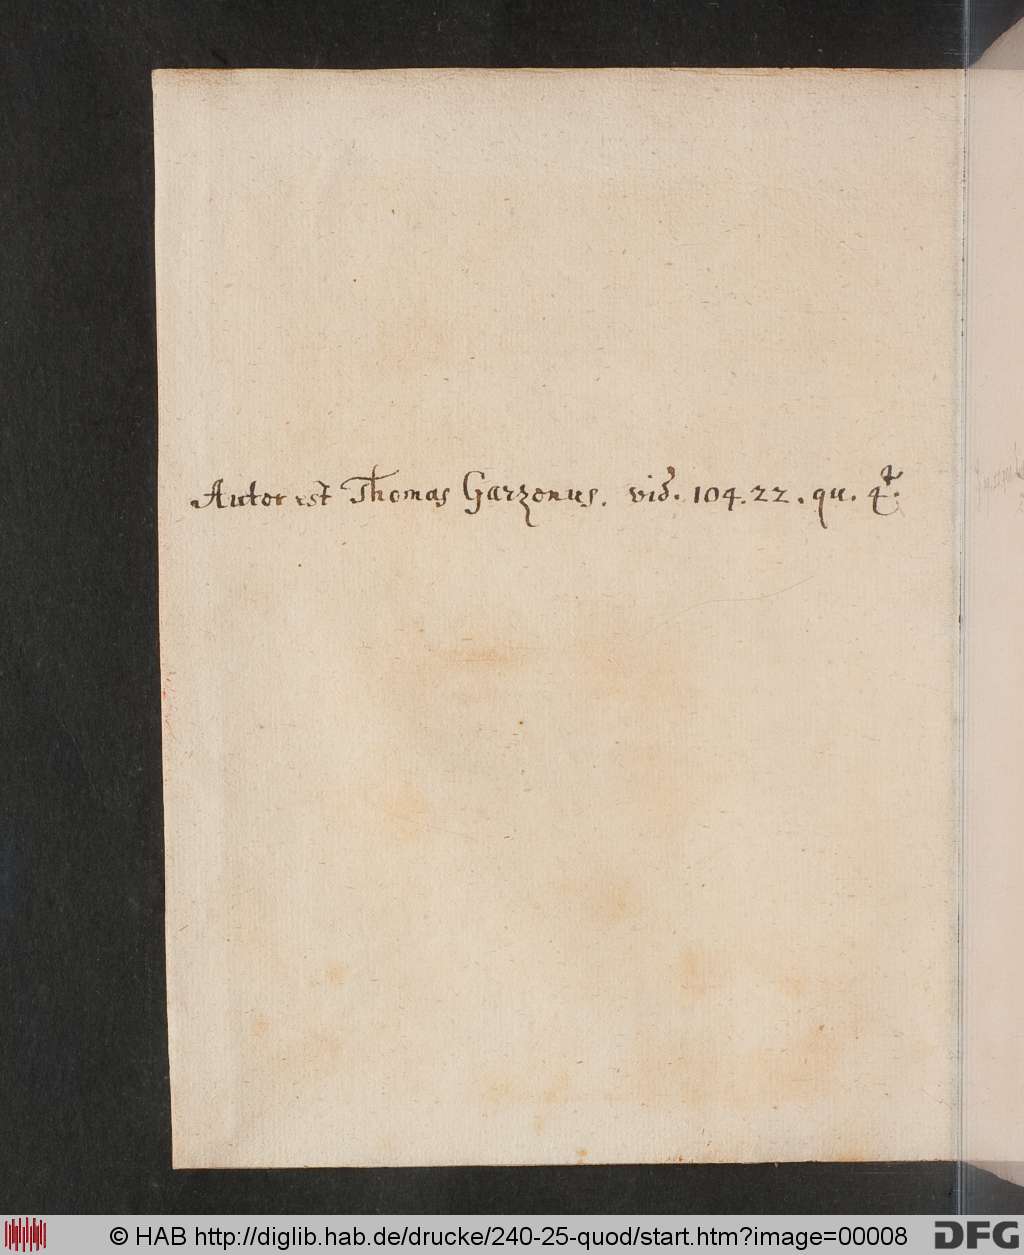 Autor est Thomas Garzonus. vid. 104. 22. qu. 4t.
© HAB http://diglib.hab.de/drucke/240-25-quod/start.htm?image=00008
DFG